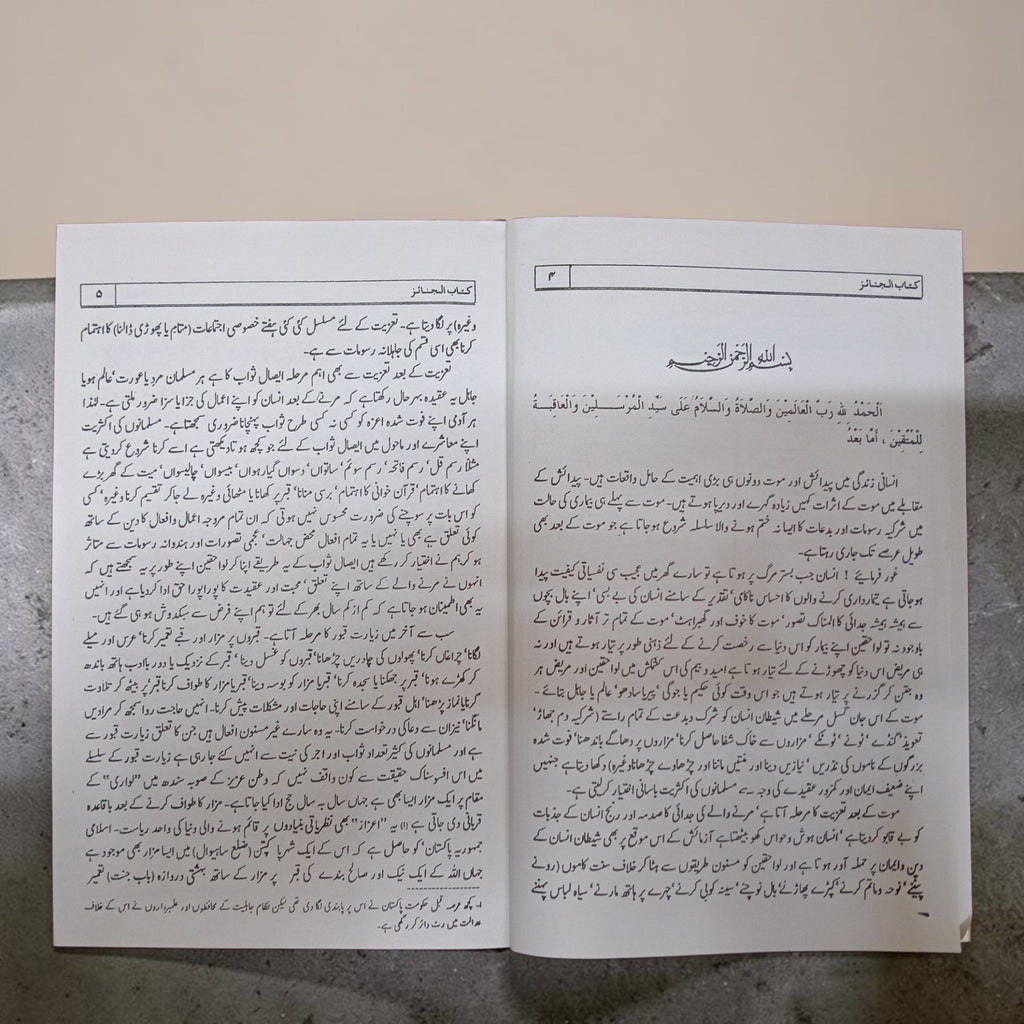 کتاب الجنائز ۴
بسم الله الرحمن الرحیم
اَلْحَمْدُ لِلّٰهِ رَبِّ الْعَالَمِيْنَ وَالصَّلَاةُ وَالسَّلَامُ عَلَى سَيِّدِ الْمُرْسَلِيْنَ وَالْعَاقِبَةُ
لِلْمُتَّقِيْنَ ، أَمَّا بَعْدُ
انسانی زندگی میں پیدائش اور موت دونوں ہی بڑی اہمیت کے حامل واقعات ہیں۔ پیدائش کے
مقابلے میں موت کے اثرات کہیں زیادہ گہرے اور دیرپا ہوتے ہیں۔ موت سے پہلے ہی بیماری کی حالت
میں شرکیہ رسومات اور بدعات کا ایسا نہ ختم ہونے والا سلسلہ شروع ہو جاتا ہے جو موت کے بعد بھی
طویل عرصے تک جاری رہتا ہے۔
غور فرمائیے ! انسان جب بستر مرگ پر ہوتا ہے تو سارے گھر میں عجیب سی نفسیاتی کیفیت پیدا
ہو جاتی ہے تیمارداری کرنے والوں کا احساس ناکامی‘ تقدیر کے سامنے انسان کی بے بسی‘ اپنے بال بچوں
سے ہمیشہ ہمیشہ جدائی کا المناک تصور‘ موت کا خوف اور گھبراہٹ‘ موت کے تمام تر آثار و قرائن کے
باوجود نہ تو لواحقین اپنے بیمار کو اس دنیا سے رخصت کرنے کے لئے ذہنی طور پر تیار ہوتے ہیں اور نہ
ہی مریض اس دنیا کو چھوڑنے کے لئے تیار ہوتا ہے امید و بیم کی اس کشمکش میں لواحقین اور مریض ہر
وہ جتن کر گزرنے پر تیار ہوتے ہیں جو اس وقت کوئی حکیم یا جوگی‘ پیر یا سادھو‘ عالم یا جاہل بتائے ۔
موت کے اس جان گسل مرحلے میں شیطان انسان کو شرک و بدعت کے تمام راستے (شرکیہ دم جھاڑ‘
تعویذ‘ گنڈے ‘ ٹونے‘ ٹوٹکے‘ مزاروں سے خاک شفا حاصل کرنا‘ مزاروں پر دھاگے باندھنا‘ فوت شدہ
بزرگوں کے ناموں کی نذریں ‘ نیازیں دینا اور منتیں ماننا اور چڑھاوے چڑھانا وغیرہ) دکھا دیتا ہے جنہیں
اپنے ضعیف ایمان اور کمزور عقیدے کی وجہ سے مسلمانوں کی اکثریت بآسانی اختیار کر لیتی ہے۔
موت کے بعد تعزیت کا مرحلہ آتا ہے‘ مرنے والے کی جدائی کا صدمہ اور رنج انسان کے جذبات
کو بے قابو کر دیتا ہے‘ انسان ہوش و حواس کھو بیٹھتا ہے آزمائش کے اس موقع پر بھی شیطان انسان کے
دین و ایمان پر حملہ آور ہوتا ہے اور لواحقین کو مسنون طریقوں سے ہٹا کر خلاف سنت کاموں (رونے
پیٹنے‘ نوحہ و ماتم کرنے‘ کپڑے پھاڑنے‘ بال نوچنے‘ سینہ کوبی کرنے‘ چہرے پر ہاتھ مارنے‘ سیاہ لباس پہننے
کتاب الجنائز ۵
وغیرہ) پر لگا دیتا ہے۔ تعزیت کے لئے مسلسل کئی کئی ہفتے خصوصی اجتماعات (متام یا پھوڑی ڈالنا) کا اہتمام
کرنا بھی اسی قسم کی جاہلانہ رسومات سے ہے۔
تعزیت کے بعد تعزیت سے بھی اہم مرحلہ ایصال ثواب کا ہے ہر مسلمان مرد یا عورت‘ عالم ہو یا
جاہل یہ عقیدہ بہرحال رکھتا ہے کہ مرنے کے بعد انسان کو اپنے اعمال کی جزا یا سزا ضرور ملتی ہے۔ لہٰذا
ہر آدمی اپنے فوت شدہ اعزہ کو کسی نہ کسی طرح ثواب پہنچانا ضروری سمجھتا ہے۔ مسلمانوں کی اکثریت
اپنے معاشرے اور ماحول میں ایصال ثواب کے لئے جو کچھ ہوتا دیکھتی ہے اسے کرنا شروع کر دیتی ہے
مثلاً رسم قل‘ رسم فاتحہ‘ رسم سوئم‘ ساتواں‘ دسواں گیارہواں‘ بیسواں‘ چالیسواں‘ میت کے گھر بڑے
کھانے کا اہتمام‘ قرآن خوانی کا اہتمام‘ برسی منانا‘ قبر پر کھانا یا مٹھائی وغیرہ لے جا کر تقسیم کرنا وغیرہ‘ کسی
کو اس بات پر سوچنے کی ضرورت محسوس نہیں ہوتی کہ ان تمام مروجہ اعمال و افعال کا دین کے ساتھ
کوئی تعلق ہے بھی یا نہیں یا یہ تمام افعال محض جہالت‘ عجمی تصورات اور ہندوانہ رسومات سے متاثر
ہو کر ہم نے اختیار کر رکھے ہیں ایصال ثواب کے یہ طریقے اپنا کر لواحقین اپنے طور پر یہ سمجھتے ہیں کہ
انہوں نے مرنے والے کے ساتھ اپنے تعلق‘ محبت اور عقیدت کا پورا پورا حق ادا کر دیا ہے اور انہیں
یہ بھی اطمینان ہو جاتا ہے کہ کم از کم سال بھر کے لئے تو ہم اپنے فرض سے سبکدوش ہو ہی گئے ہیں۔
سب سے آخر میں زیارت قبور کا مرحلہ آتا ہے۔ قبروں پر مزار اور قبے تعمیر کرنا‘ عرس اور میلے
لگانا‘ چراغاں کرنا‘ پھولوں کی چادریں چڑھانا‘ قبروں کو غسل دینا‘ قبر کے نزدیک یا دور باادب ہاتھ باندھ
کر کھڑے ہونا‘ قبر پر جھکنا یا سجدہ کرنا‘ قبر یا مزار کو بوسہ دینا‘ قبر یا مزار کا طواف کرنا‘ قبر پر بیٹھ کر تلاوت
کرنا یا نماز پڑھنا‘ اہل قبور کے سامنے اپنی حاجات اور مشکلات پیش کرنا۔ انہیں حاجت روا سمجھ کر مرادیں
مانگنا‘ نیز ان سے دعا کی درخواست کرنا۔ یہ وہ سارے غیر مسنون افعال ہیں جن کا تعلق زیارت قبور سے
ہے اور مسلمانوں کی کثیر تعداد ثواب اور اجر کی نیت سے انہیں کئے جا رہی ہے زیارت قبور کے سلسلے
میں اس افسوسناک حقیقت سے کون واقف نہیں کہ وطن عزیز کے صوبہ سندھ میں ”لواری“ کے
مقام پر ایک مزار ایسا بھی ہے جہاں سال بہ سال حج ادا کیا جاتا ہے۔ مزار کا طواف کرنے کے بعد باقاعدہ
قربانی دی جاتی ہے (۱) یہ ”اعزاز“ بھی نظریاتی بنیادوں پر قائم ہونے والی دنیا کی واحد ریاست۔ اسلامی
جمہوریہ پاکستان‘ کو حاصل ہے کہ اس کے ایک شہر پاکپتن (ضلع ساہیوال) میں ایسا مزار بھی موجود ہے
جہاں اللہ کے ایک نیک اور صالح بندے کی قبر پر مزار کے ساتھ بہشتی دروازہ (باب جنت) تعمیر
۱۔ کچھ عرصہ قبل حکومت پاکستان نے اس پر پابندی لگا دی تھی لیکن نظام جاہلیت کے محافظوں اور علمبرداروں نے اس کے خلاف
عدالت میں رٹ دائر کر رکھی ہے۔